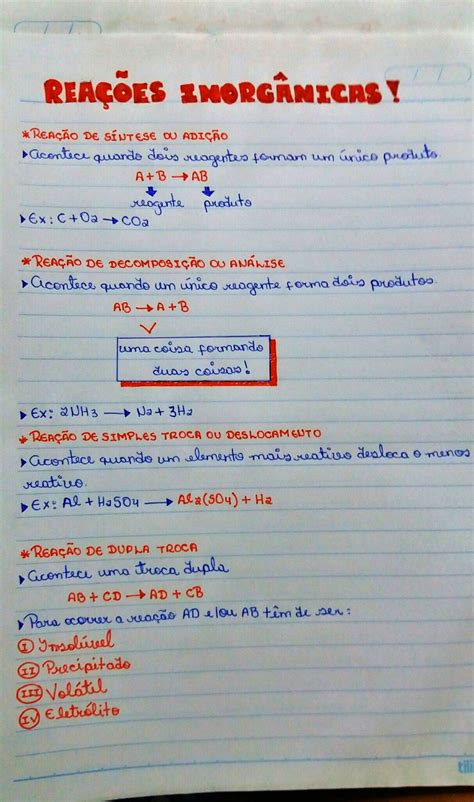 REAÇÕES INORGÂNICAS!
*REAÇÃO DE SÍNTESE OU ADIÇÃO
Acontece quando dois reagentes formam um único produto.
A+B → AB
reagente produto
Ex: C + O2 → CO2
*REAÇÃO DE DECOMPOSIÇÃO OU ANÁLISE
Acontece quando um único reagente forma dois produtos.
AB → A+B
uma coisa formando
duas coisas!
Ex: 2NH3 → N2 + 3H2
*REAÇÃO DE SIMPLES TROCA OU DESLOCAMENTO
Acontece quando um elemento mais reativo desloca o menos
reativo.
Ex: Al + H2SO4 → Al2(SO4) + H2
*REAÇÃO DE DUPLA TROCA
Acontece uma troca dupla
AB + CD → AD + CB
Para ocorrer a reação AD e/ou AB têm de ser:
I Insolúvel
II Precipitado
III Volátil
IV Eletrólito